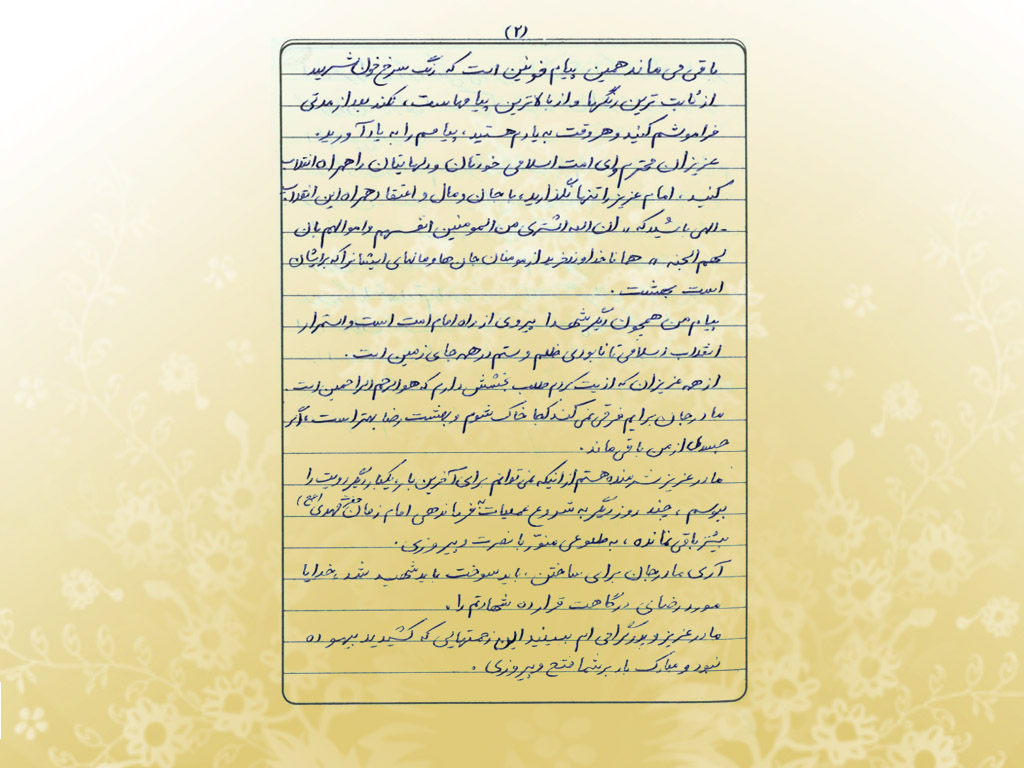 (۲)
باقی می ماند همین پیام خونین است که رنگ سرخ خون شهید
از ثابت ترین رنگها و از بالاترین پیامهاست، نکند بعد از مدتی
فراموشم کنید و هر وقت به یادم هستید، پیامم را به یاد آورید.
عزیزان محترم و ای امت اسلامی خودتان و دلهایتان را همراه انقلاب
کنید، امام عزیز را تنها نگذارید، با جان و مال و اعتقاد همراه این انقلاب
الهی باشید که «ان الله اشتری من المومنین انفسهم و اموالهم بان
لهم الجنه» همانا خداوند خرید از مومنان جان ها و مالهای ایشانرا که برایشان
است بهشت.
پیام من همچون دیگر شهدا پیروی از راه امام امت است و استمرار
انقلاب اسلامی تا نابودی ظلم و ستم در همه جای زمین است.
از همه عزیزان که اذیت کردم طلب بخشش دارم که هو ارحم الراحمین است.
مادر جان برایم فرقی نمی کند کجا خاک شوم و بهشت رضا بهتر است، اگر
جسدی از من باقی ماند.
مادر عزیز شرمنده هستم از اینکه نمی توانم برای آخرین بار، یکبار دیگر رویت را
ببوسم، چند روز دیگر به شروع عملیات به فرماندهی امام زمان حضرت مهدی (عج)
بیشتر باقی نمانده، به طلوعی منور با نصرت و پیروزی.
آری مادر جان برای ساختن، باید سوخت باید شهید شد، خدایا
مورد رضای درگاهت قرار ده شهادتم را.
مادر عزیز و پدر گرامی ام ببینید این زحمتهایی که کشیدید بیهوده
نبود و مبارک باد بر شما فتح و پیروزی.